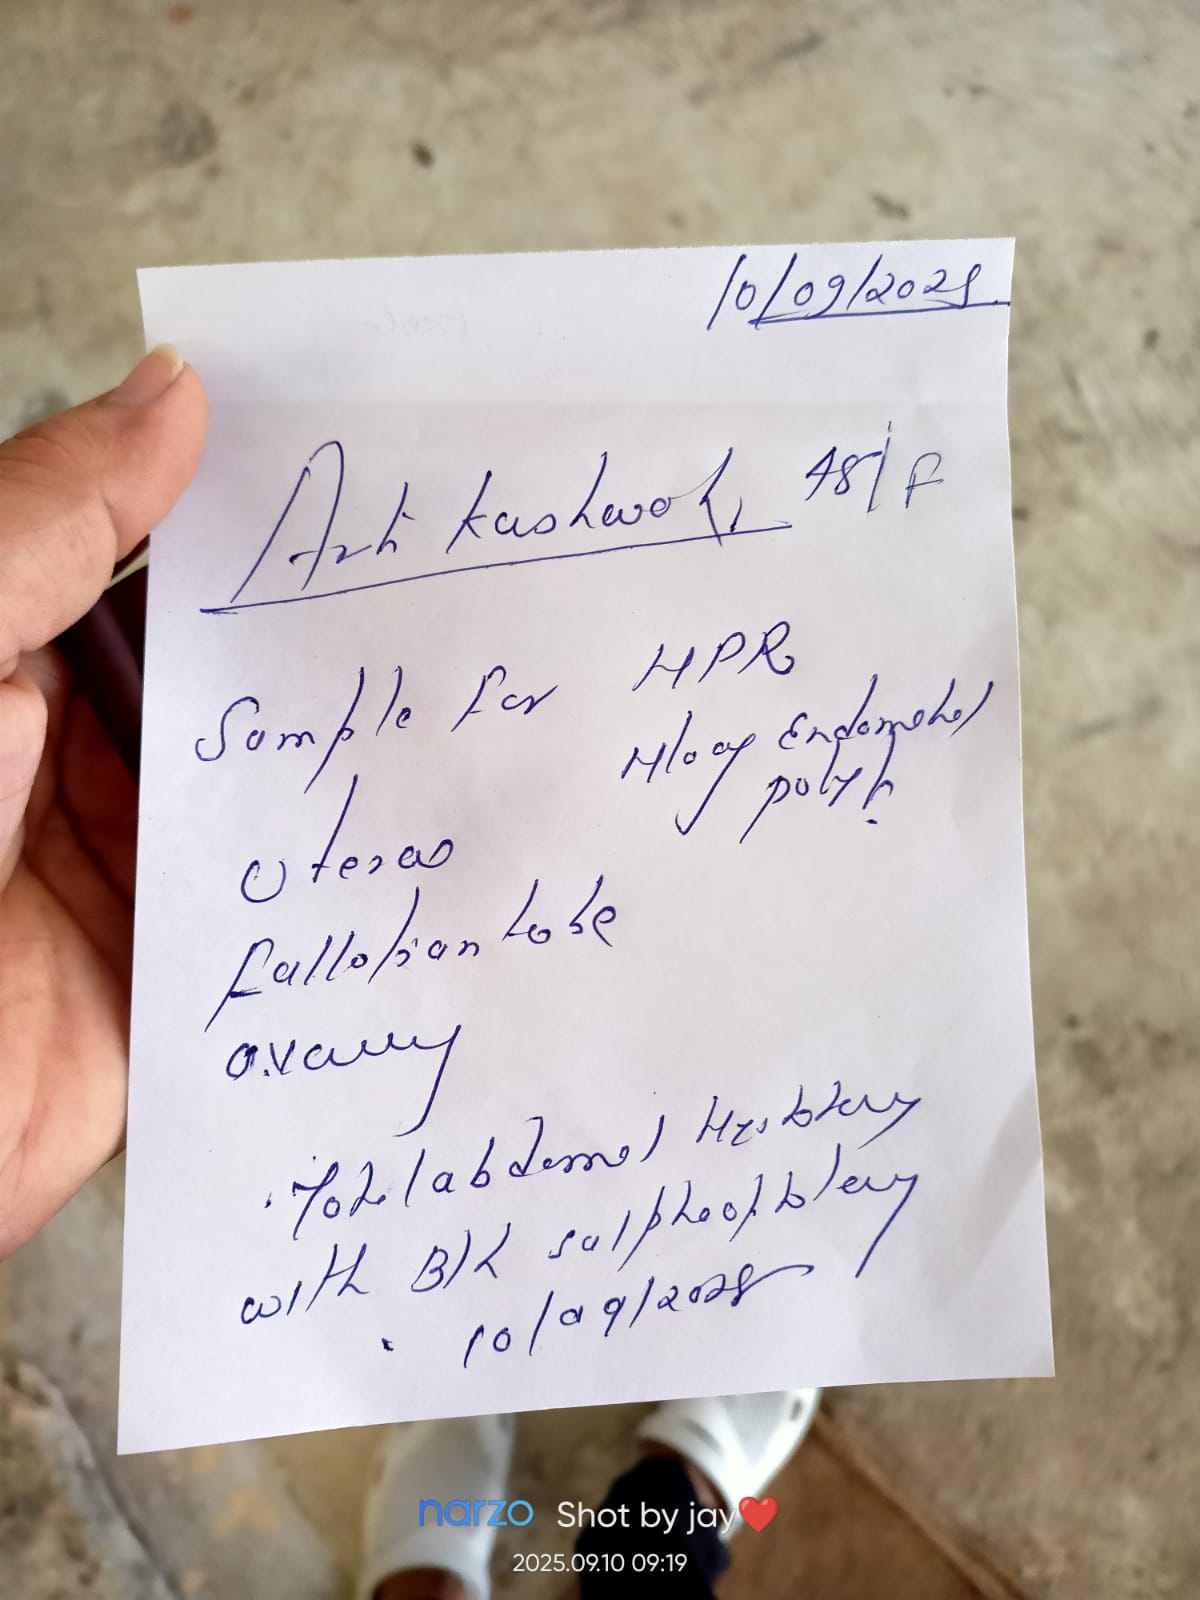 10/09/2025
Arti Kushwah, 48/F
Sample for HPR
H/o of Endometrial
polyp
Uterus
Fallopian tube
Ovary
Total abdominal Hysterectomy
with B/L salphoophrectomy
10/09/2025
narzo Shot by jay❤️
2025.09.10 09:19